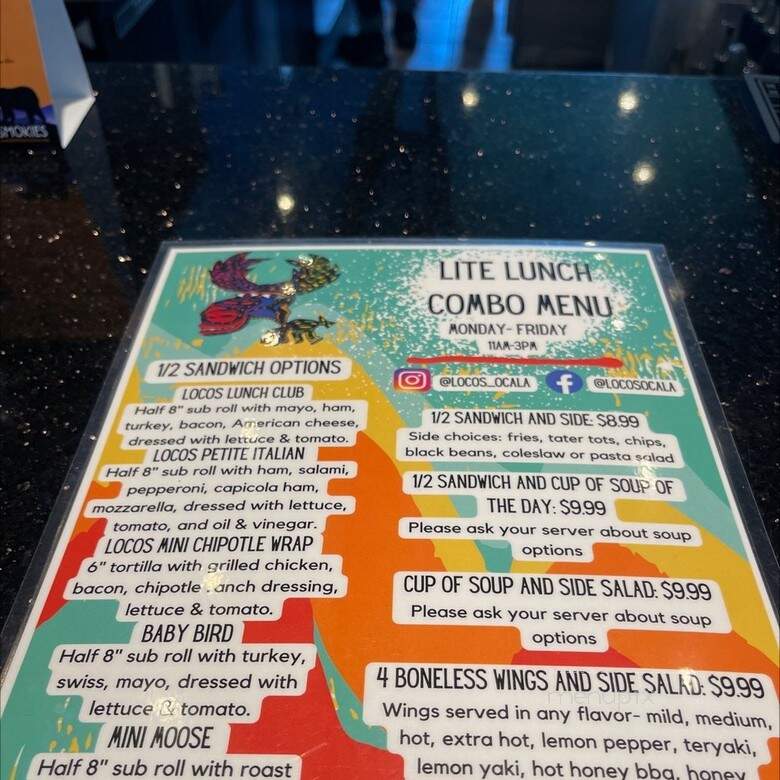 SMOKIES
LITE LUNCH
COMBO MENU
MONDAY-FRIDAY
11AM-3PM
@LOCOS_OCALA
@LOCOSOCALA
1/2 SANDWICH OPTIONS
LOCOS LUNCH CLUB
Half 8" sub roll with mayo, ham,
turkey, bacon, American cheese,
dressed with lettuce & tomato.
LOCOS PETITE ITALIAN
Half 8" sub roll with ham, salami,
pepperoni, capicola ham,
mozzarella, dressed with lettuce,
tomato, and oil & vinegar.
LOCOS MINI CHIPOTLE WRAP
6" tortilla with grilled chicken,
bacon, chipotle ranch dressing,
lettuce & tomato.
BABY BIRD
Half 8" sub roll with turkey,
swiss, mayo, dressed with
lettuce & tomato.
MINI MOOSE
Half 8" sub roll with roast
1/2 SANDWICH AND SIDE: $8.99
Side choices: fries, tater tots, chips,
black beans, coleslaw or pasta salad
1/2 SANDWICH AND CUP OF SOUP OF
THE DAY: $9.99
Please ask your server about soup
options
CUP OF SOUP AND SIDE SALAD: $9.99
Please ask your server about soup
options
4 BONELESS WINGS AND SIDE SALAD: $9.99
Wings served in any flavor- mild, medium,
hot, extra hot, lemon pepper, teryaki,
lemon yaki, hot honey bbq, honey
menupix